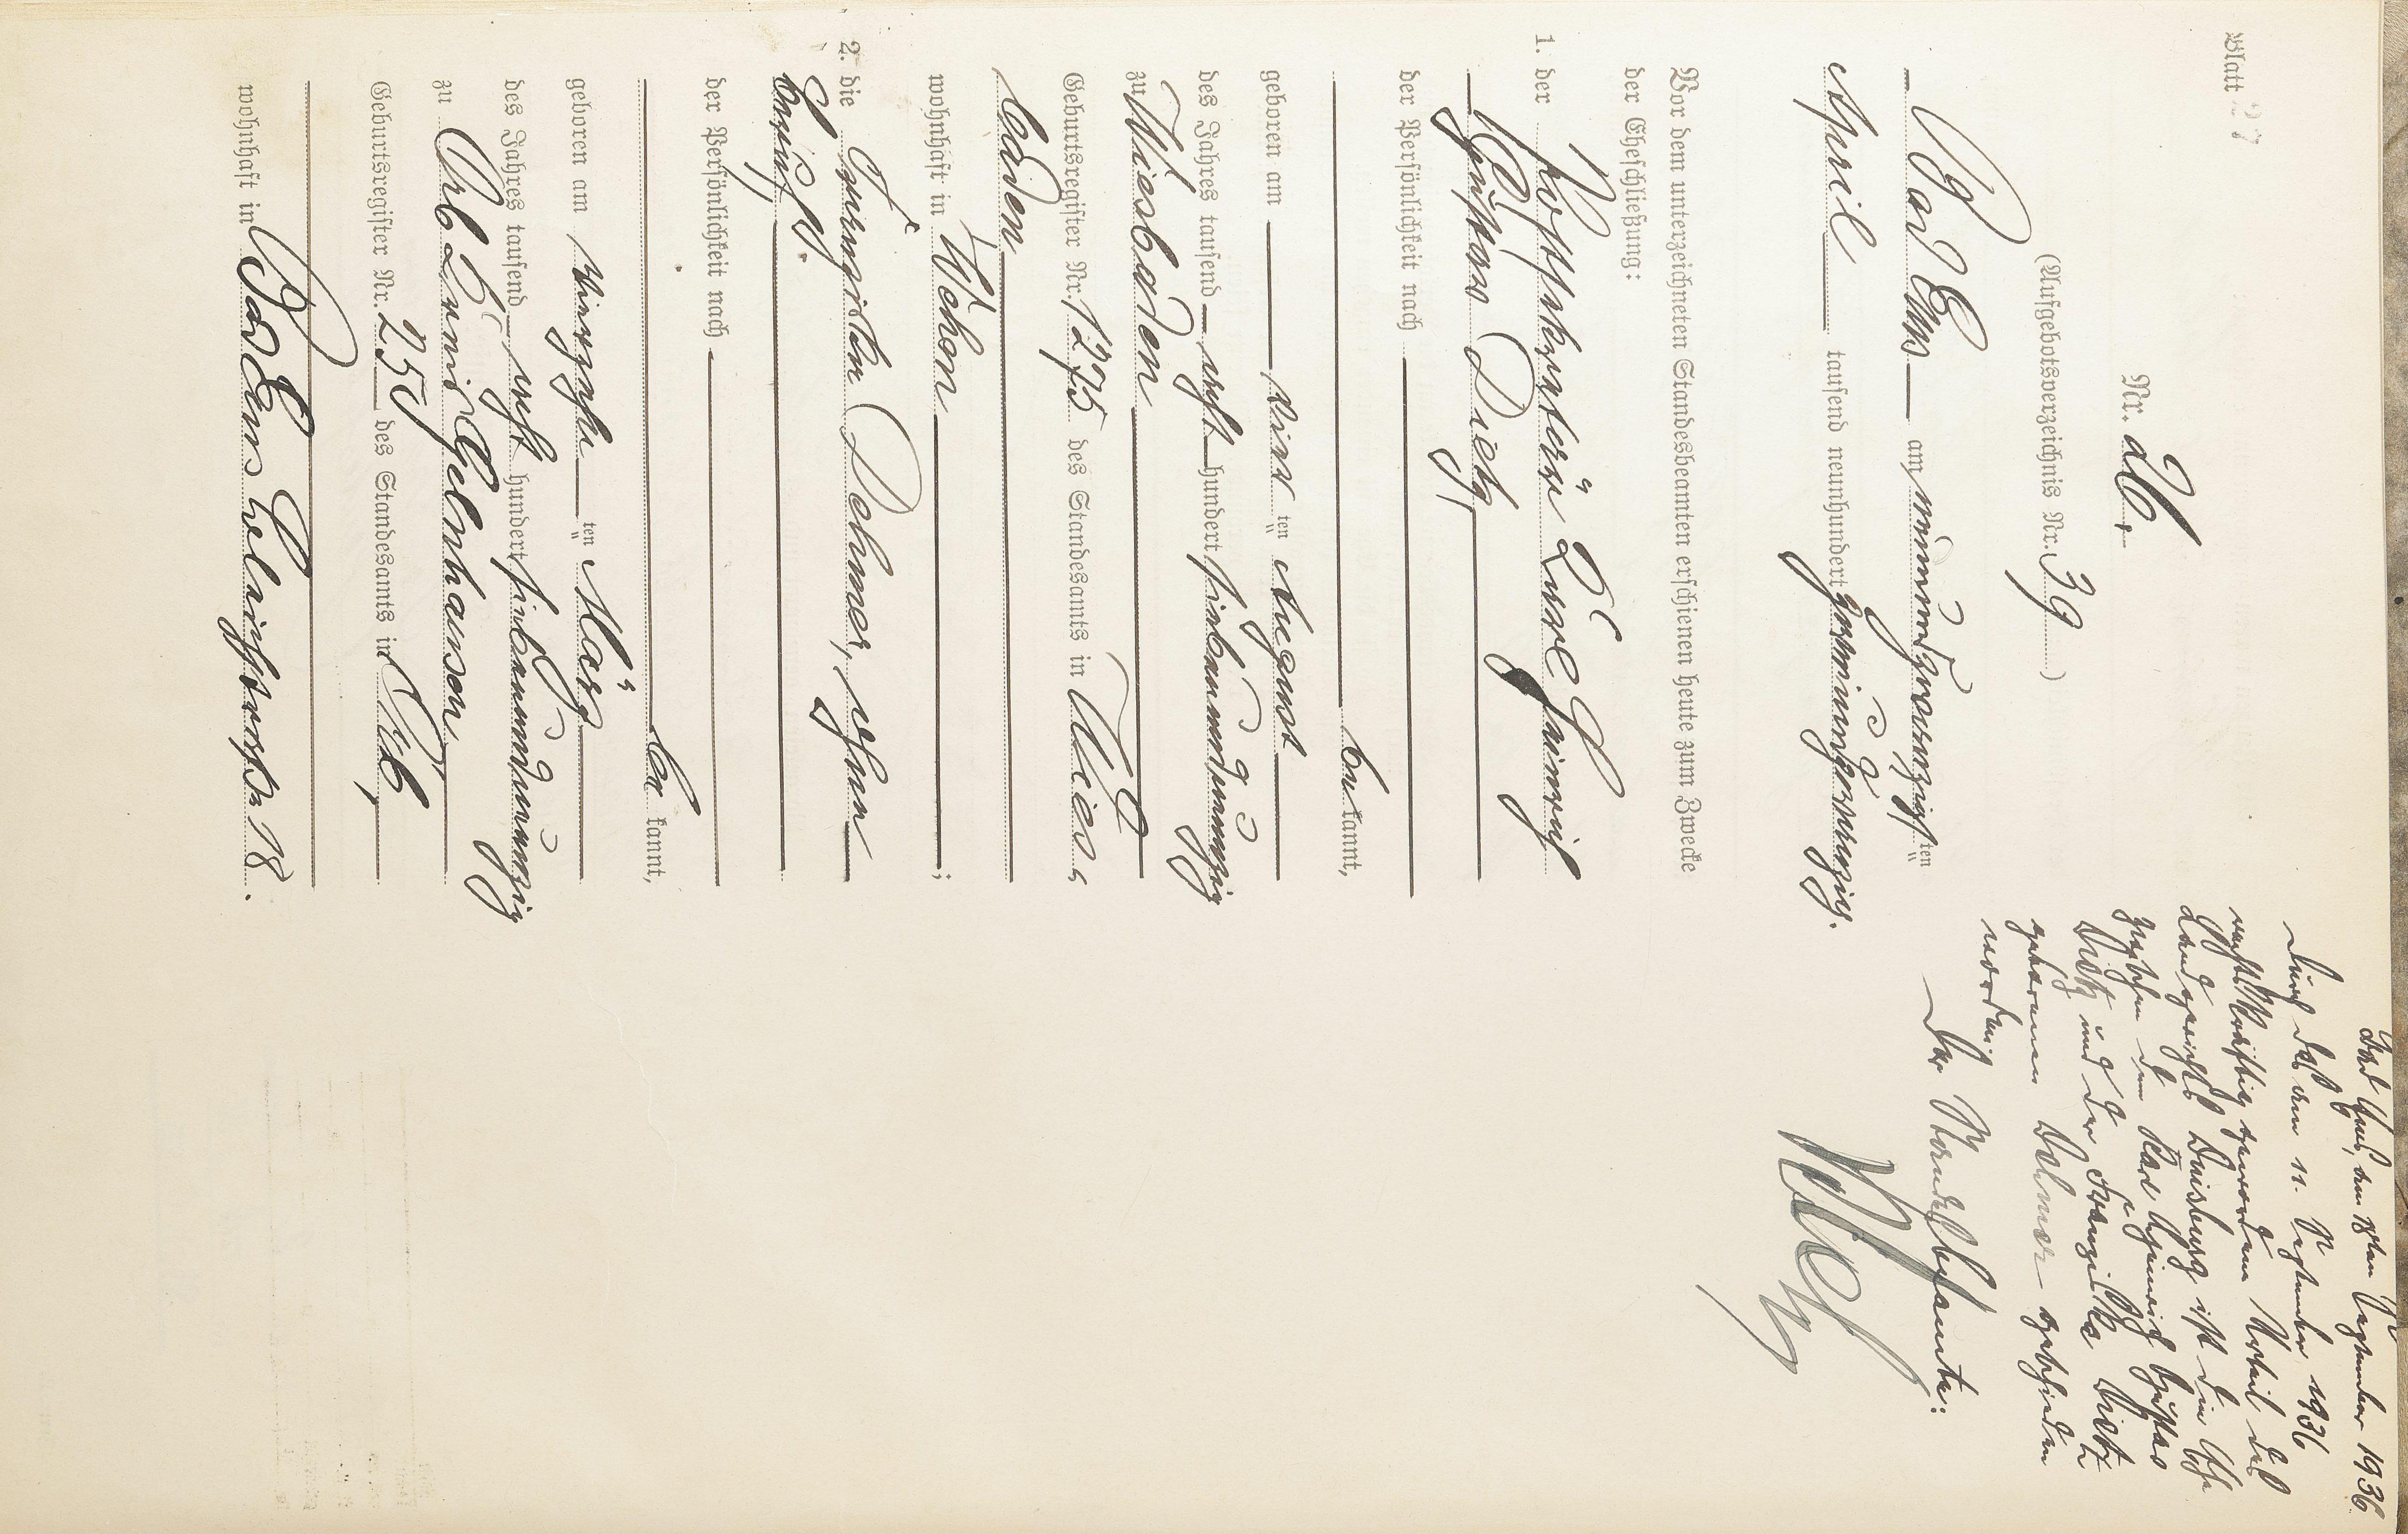 Blatt 27
Nr. 26.
(Aufgebotsverzeichnis Nr. 39)
Bad Ems am neunundzwanzigsten
April tausend neunhundert zwanzig
Vor dem unterzeichneten Standesbeamten erschienen heute zum Zwecke
der Eheschließung:
1. der Karl Heinrich
Gustav Dietz,
der Persönlichkeit nach
be kannt,
geboren am ten August
des Jahres tausend acht hundert siebenundneunzig
zu Wiesbaden
Geburtsregister Nr. 1275 des Standesamts in Wies-
baden
wohnhaft in Wehen ;
2. die Franziska Dehmer, ohne
Beruf,
der Persönlichkeit nach
be kannt,
geboren am ten März
des Jahres tausend acht hundert siebenundneunzig
zu Orb Kreis Gelnhausen
Geburtsregister Nr. 25 des Standesamts in Orb,
wohnhaft in Bad Ems 18.
Bad Ems, den 18ten September 1936
Durch das am 11. September 1936
rechtskräftig gewordene Urteil des
Landgerichts Duisburg ist die Ehe
zwischen dem Karl Heinrich Gustav
Dietz und der Franziska Dietz
geborenen Dehmer geschieden
worden.
Der Standesbeamte: